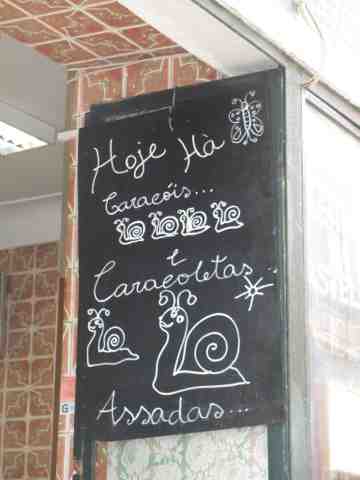 Hoje Hà
Caracóis...
e
Caracoletas
Assadas...
G